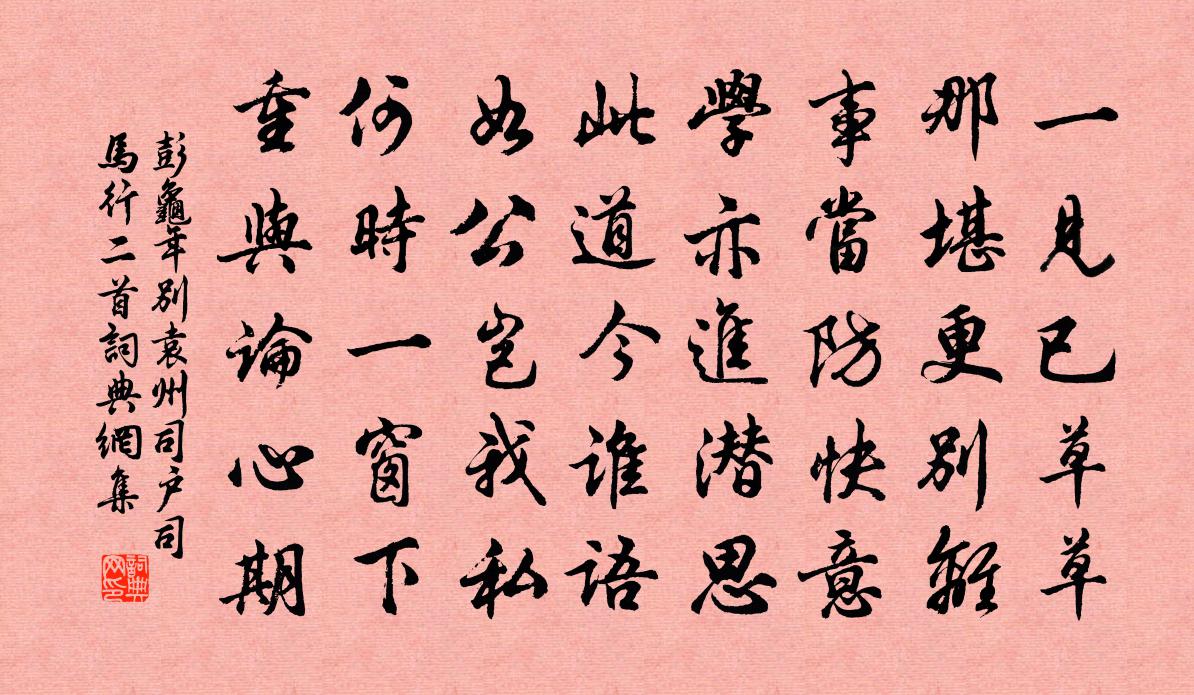 一見已草草
那堪更別離
事當防快意
學亦進潛思
此道今誰語
如公豈我私
何時一窗下
重與論心期
彭龜年別袁州司户司
馬行二首詞典網集
詞典
网印